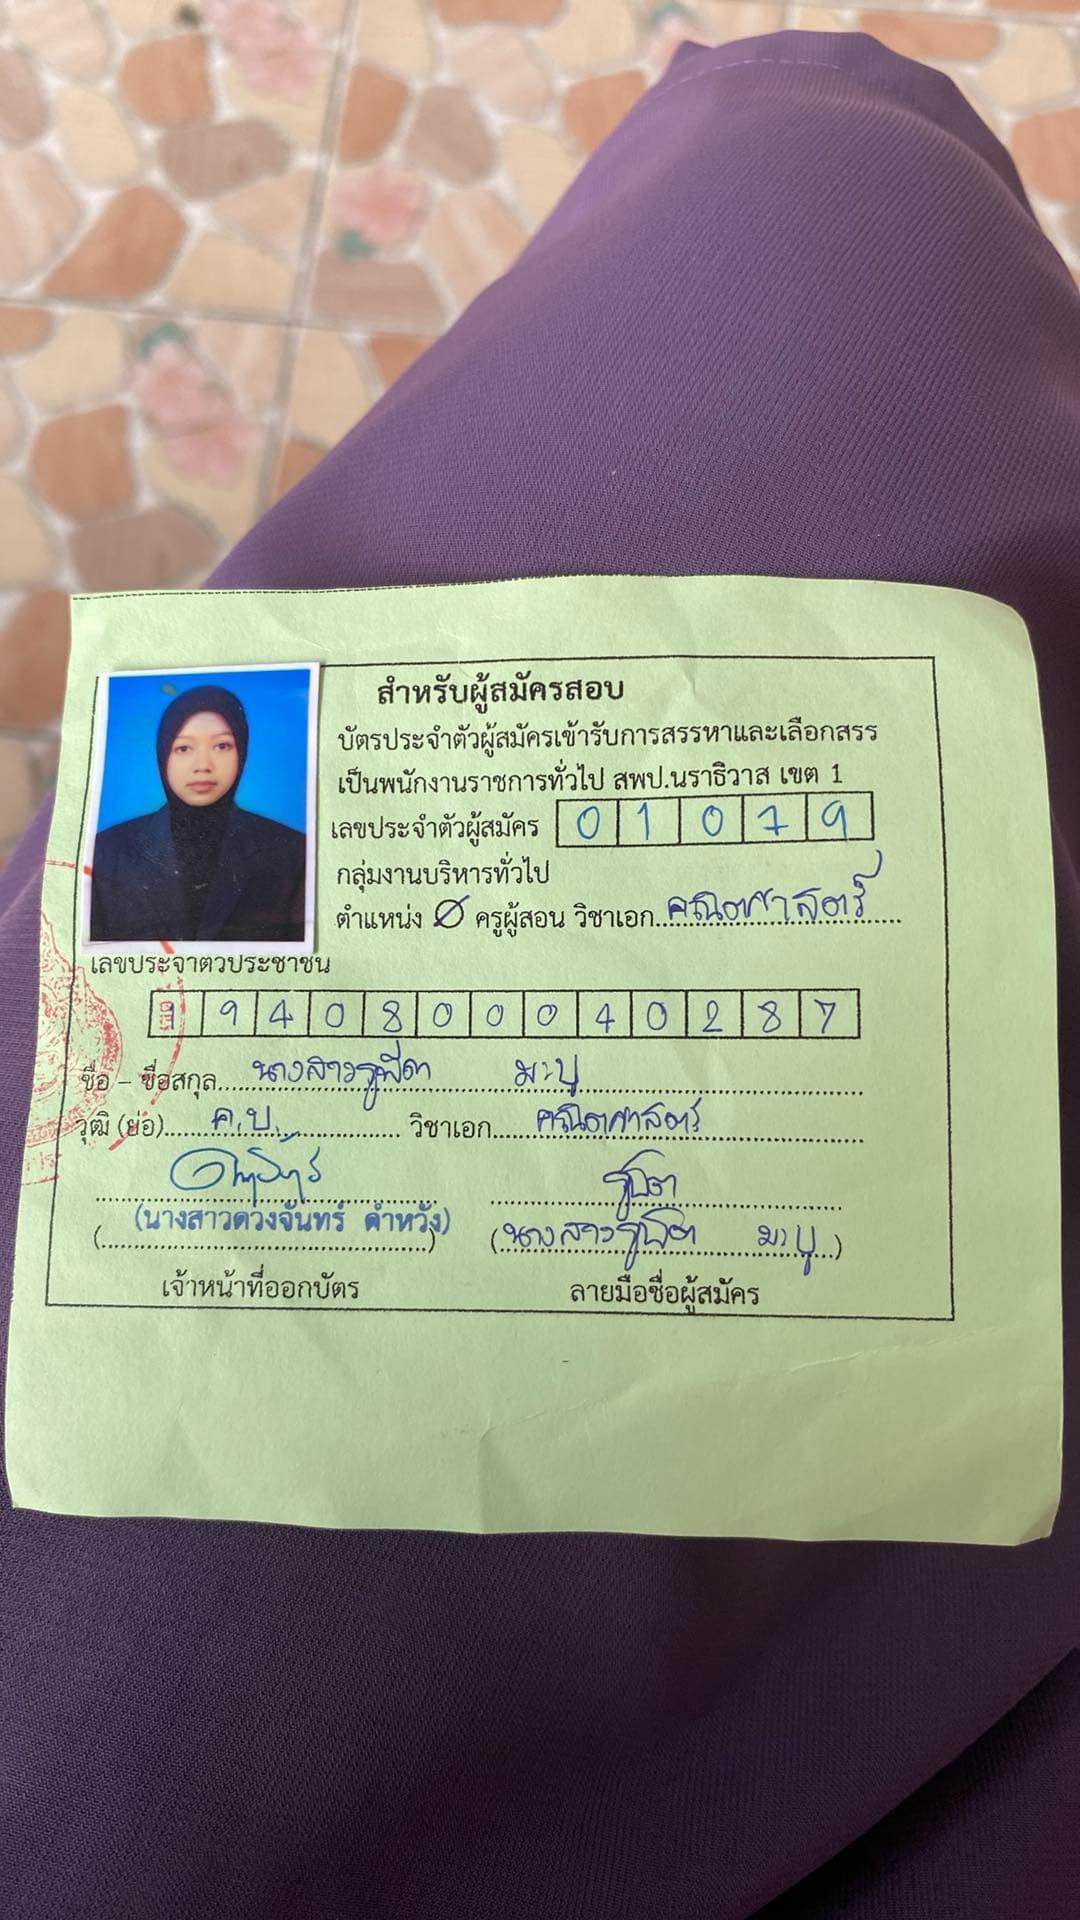 สำหรับผู้สมัครสอบ
บัตรประจำตัวผู้สมัครเข้ารับการสรรหาและเลือกสรร
เป็นพนักงานราชการทั่วไป สพป.นราธิวาส เขต 1
เลขประจำตัวผู้สมัคร 0 1 0 7 9
กลุ่มงานบริหารทั่วไป
ตำแหน่ง ครูผู้สอน วิชาเอก คณิตศาสตร์
เลขประจำตัวประชาชน
1 9 4 0 8 0 0 0 4 0 2 8 7
ชื่อ - ชื่อสกุล นางสาว มะบู
วุฒิ (ย่อ) ค.บ. วิชาเอก คณิตศาสตร์
(นางสาวดวงจันทร์ คำหวัง) (นางสาว มะบู)
เจ้าหน้าที่ออกบัตร ลายมือชื่อผู้สมัคร